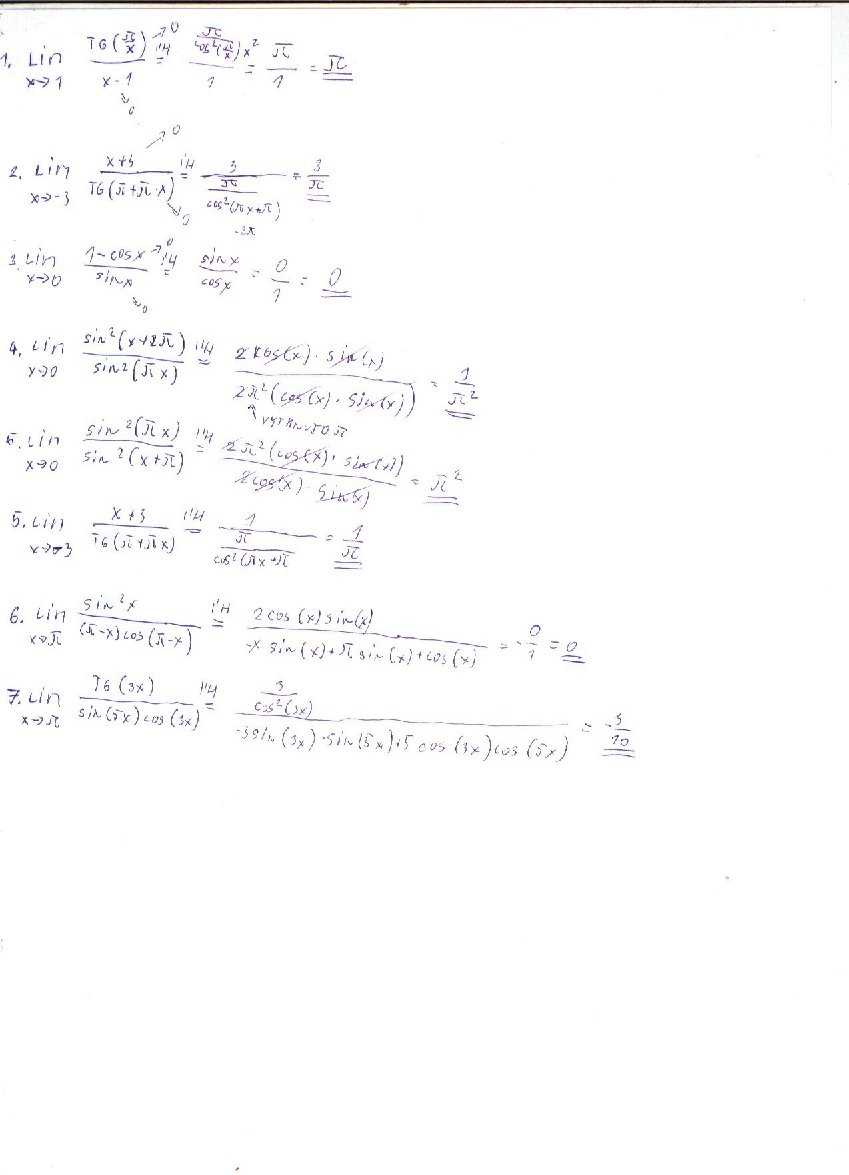 1. Lim x→1 TG(π/x) →0 / x-1 →0 l'H = π / cos²(π/x) x² / 1 = π/1 = π
2. Lim x→-3 x+3 →0 / TG(π+π·x) →0 l'H = 3 / π / cos²(πx+π) = 3/π
3. Lim x→0 1-cosx →0 / sinx →0 l'H = sinx / cosx = 0/1 = 0
4. Lim x→0 sin²(x+2π) / sin²(πx) l'H = 2cos(x)·sin(x) / 2π²(cos(x)·sin(x)) = 1/π²
5. Lim x→0 sin²(πx) / sin²(x+π) l'H = 2π²(cos(x)·sin(x)) / 2cos(x)·sin(x) = π²
5. Lim x→-3 x+3 / TG(π+πx) l'H = 1 / π / cos²(πx+π = 1/π
6. Lim x→π sin²x / (π-x)cos(π-x) l'H = 2cos(x)sin(x) / -x sin(x)+π sin(x)+cos(x) = -0/1 = 0
7. Lim x→π TG(3x) / sin(5x)cos(3x) l'H = 3 / cos²(3x) / -3sin(3x)·sin(5x)+5cos(3x)cos(5x) =